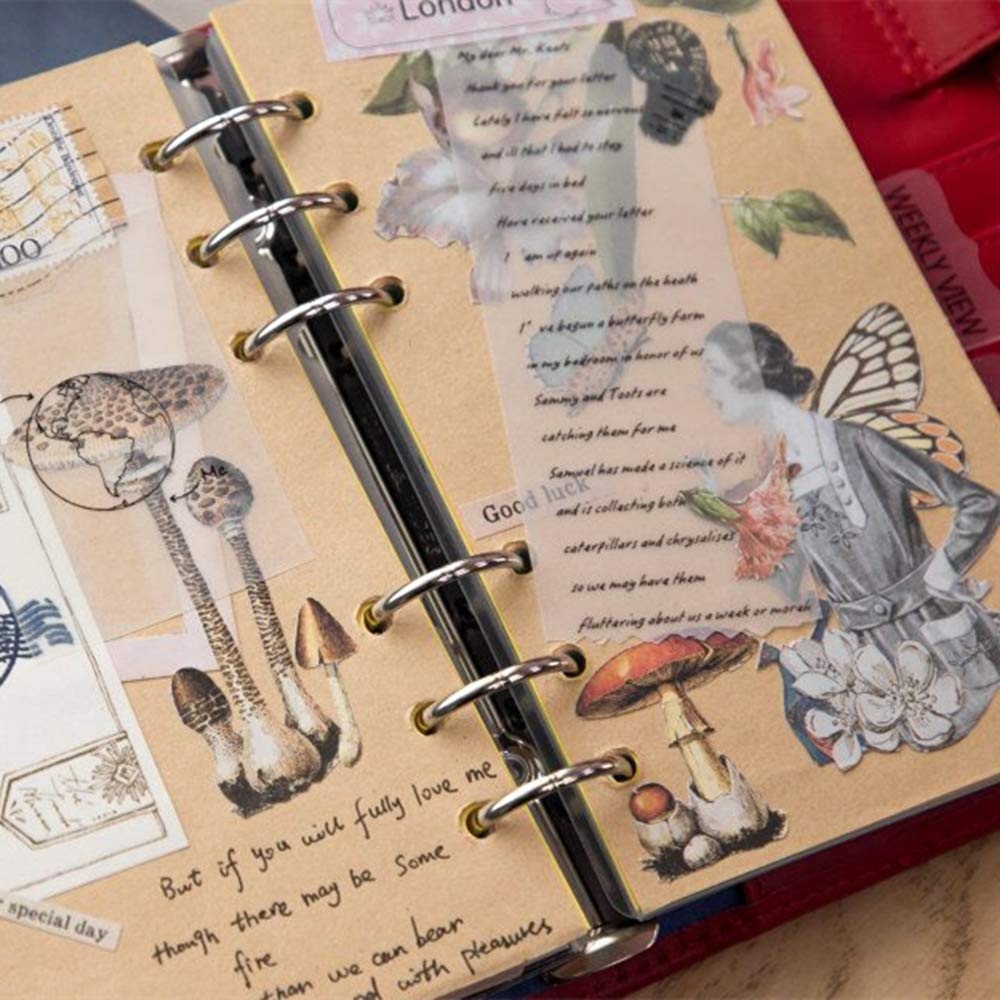 00
Mc
special day
But if you will fully love me
though there may be Some
fire
than we can bear
with pleasures
London
My dear Mr. Keats
thank you for your letter
Lately I have felt so nervous
and ill that I had to stay
five days in bed
Have received your letter
I 'am up again
walking our paths on the heath
I' ve begun a butterfly farm
in my bedroom in honor of us
Sammy and Toots are
catching them for me
Samuel has made a science of it
and is collecting both
caterpillars and chrysalises
so we may have them
fluttering about us a week or more
Good luck
WEEKLY VIEW